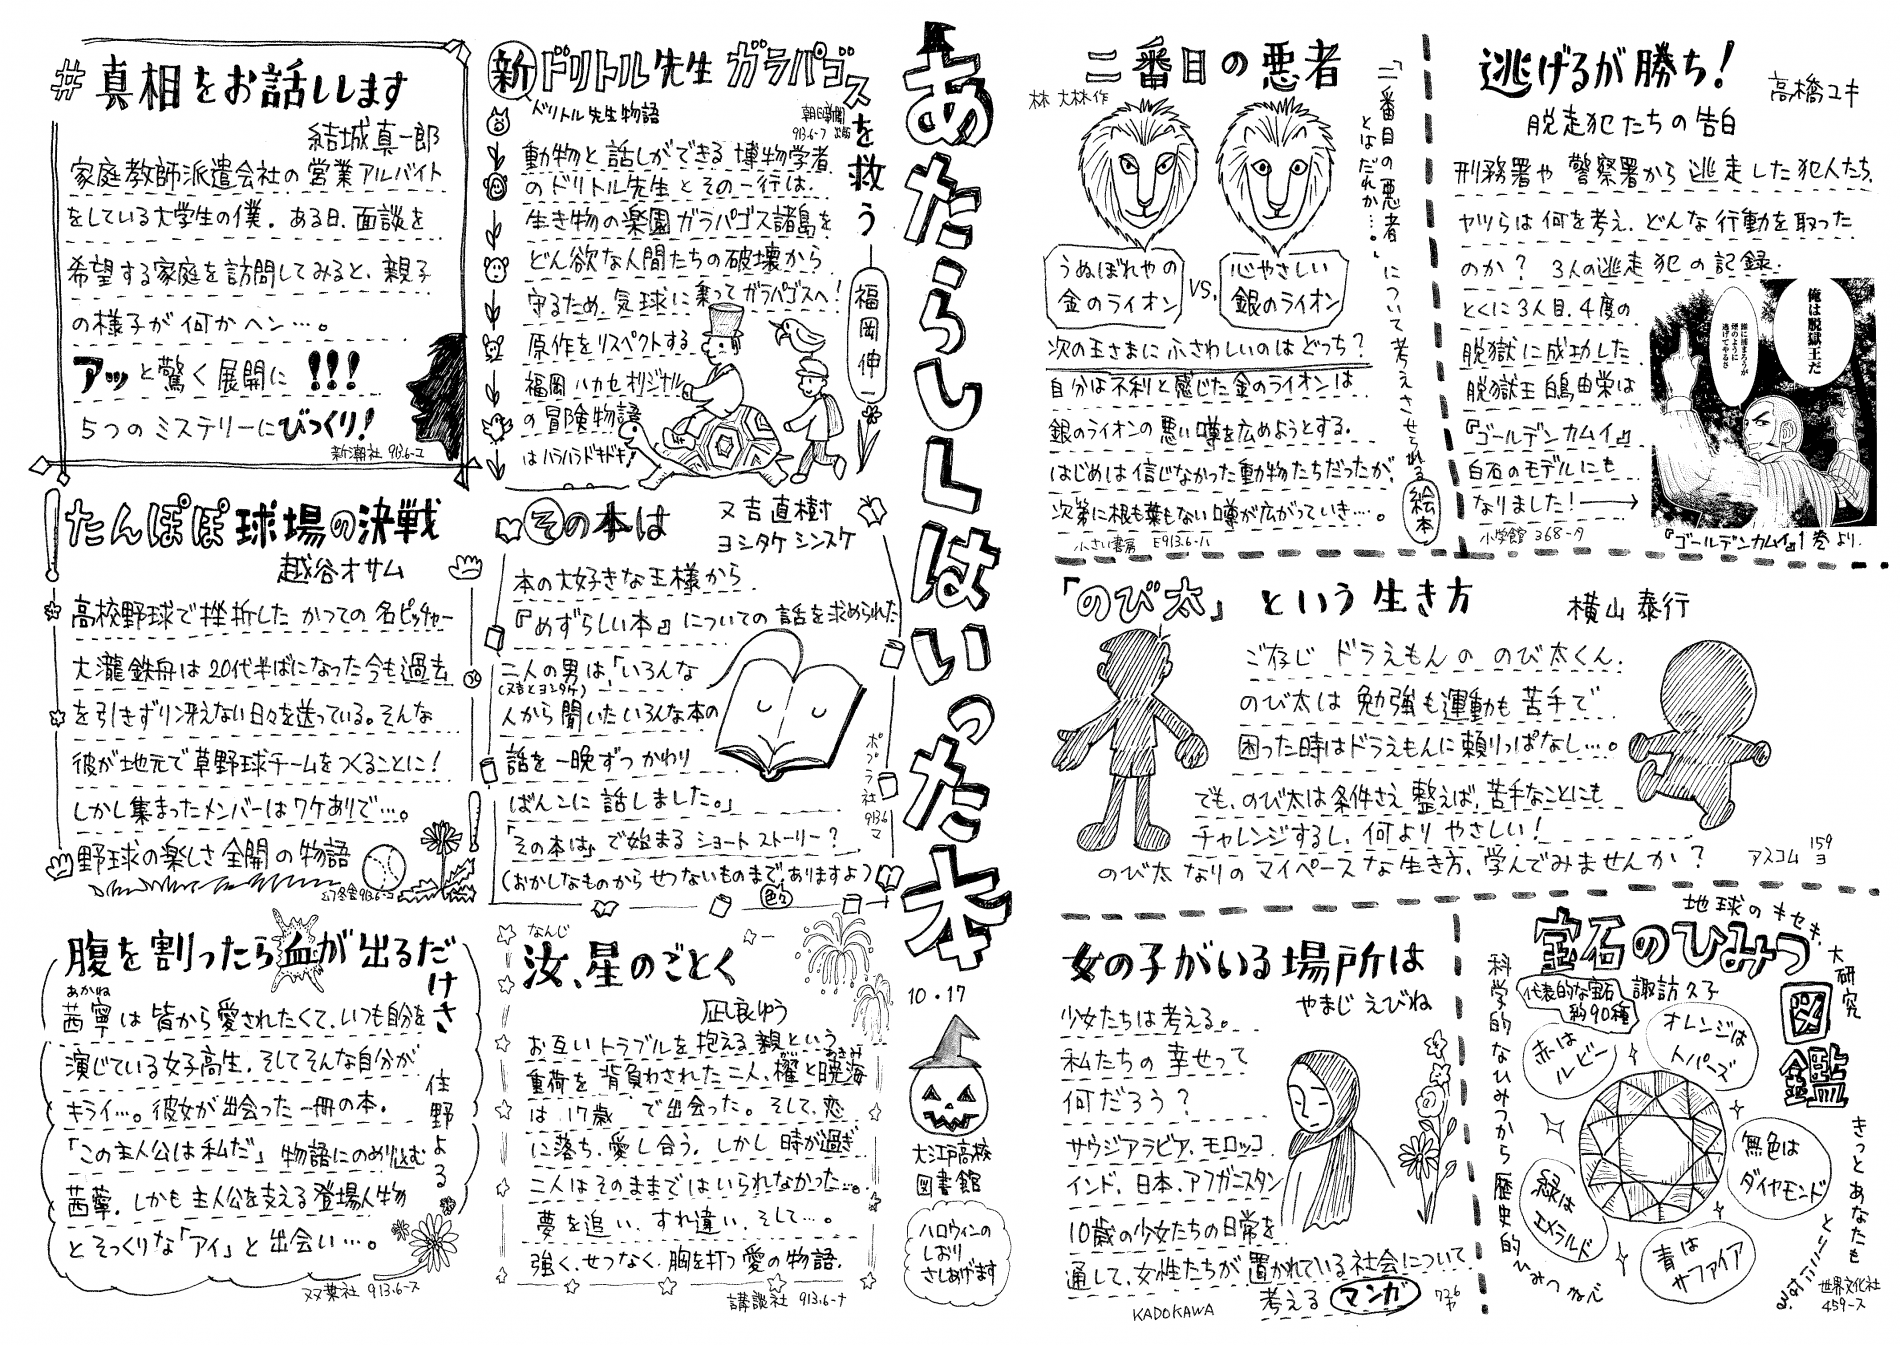 あたらしくはいった本
10.17
大江戸高校
図書館
ハロウィンの
しおり
さしあげます
#真相をお話しします
結城真一郎
家庭教師派遣会社の営業アルバイト
をしている大学生の僕。ある日、面談を
希望する家庭を訪問してみると、親子
の様子が何かヘン…。
アッと驚く展開に!!!
5つのミステリーにびっくり!
新潮社 913.6-ユ
新ドリトル先生ガラパゴスを救う
ドリトル先生物語
福岡伸一
朝日新聞出版
913.6-フ
動物と話しができる博物学者
のドリトル先生とその一行は、
生き物の楽園ガラパゴス諸島を
どん欲な人間たちの破壊から
守るため、気球に乗ってガラパゴスへ!
原作をリスペクトする
福岡ハカセオリジナル
の冒険物語
はハラハラドキドキ!
たんぽぽ球場の決戦
越谷オサム
高校野球で挫折したかつての名ピッチャー
大瀧鉄舟は20代半ばになった今も過去
を引きずり冴えない日々を送っている。そんな
彼が地元で草野球チームをつくることに!
しかし集まったメンバーはワケありで…。
野球の楽しさ全開の物語
幻冬舎 913.6-コ
その本は
又吉直樹
ヨシタケシンスケ
本の大好きな王様から、
『めずらしい本』についての話を求められた
二人の男は、「いろんな
(又吉とヨシタケ)
人から聞いたいろんな本の
話を一晩ずつかわり
ばんこに話しました。」
「その本は」で始まるショートストーリー?
(おかしなものからせつないものまで、色々ありますよ)
ポプラ社
913.6
マ
腹を割ったら血が出るだけさ
住野よる
あかね
茜寧は皆から愛されたくて、いつも自分を
演じている女子高生。そしてそんな自分が
キライ…。彼女が出会った一冊の本。
「この主人公は私だ」物語にのめり込む
茜寧。しかも主人公を支える登場人物
とそっくりな「アイ」と出会い…。
双葉社 913.6-ス
なんじ
汝、星のごとく
凪良ゆう
お互いトラブルを抱える親という
重荷を背負わされた二人、櫂と暁海
は17歳で出会った。そして、恋
に落ち、愛し合う。しかし時が過ぎ
二人はそのままではいられなかった…。
夢を追い、すれ違い、そして…。
強く、せつなく、胸を打つ愛の物語。
講談社 913.6-ナ
二番目の悪者
林 木林作
「二番目の悪者」について考えさせられる絵本
とはだれか…。
うぬぼれやの
金のライオン
VS.
心やさしい
銀のライオン
次の王さまにふさわしいのはどっち?
自分は不利と感じた金のライオンは
銀のライオンの悪い噂を広めようとする。
はじめは信じなかった動物たちだったが、
次第に根も葉もない噂が広がっていき…。
小さい書房 E913.6-ハ
逃げるが勝ち!
脱走犯たちの告白
高橋ユキ
刑務署や警察署から逃走した犯人たち。
ヤツらは何を考え、どんな行動を取った
のか? 3人の逃走犯の記録。
とくに3人目、4度の
脱獄に成功した
脱獄王白鳥由栄は
『ゴールデンカムイ』
白石のモデルにも
なりました!→
小学館 368-タ
俺は脱獄王だ
誰に捕まろうが
煙のように
逃げてやるさ
『ゴールデンカムイ』1巻より。
「のび太」という生き方
横山泰行
ご存じドラえもんののび太くん。
のび太は勉強も運動も苦手で
困った時はドラえもんに頼りっぱなし…。
でも、のび太は条件さえ整えば、苦手なことにも
チャレンジするし、何よりやさしい!
のび太なりのマイペースな生き方、学んでみませんか?
アスコム 159
ヨ
女の子がいる場所は
やまじえびね
少女たちは考える。
私たちの幸せって
何だろう?
サウジアラビア、モロッコ
インド、日本、アフガニスタン
10歳の少女たちの日常を
通して、女性たちが置かれている社会について
考えるマンガ
KADOKAWA
726
ヤ
地球のキセキ、大研究
宝石のひみつ図鑑
諏訪久子
代表的な宝石
約90種
科学的なひみつから歴史的ひみつなど
赤は
ルビー
オレンジは
トパーズ
無色は
ダイヤモンド
緑は
エメラルド
青は
サファイア
きっとあなたも
とりこになる
世界文化社
459-ス